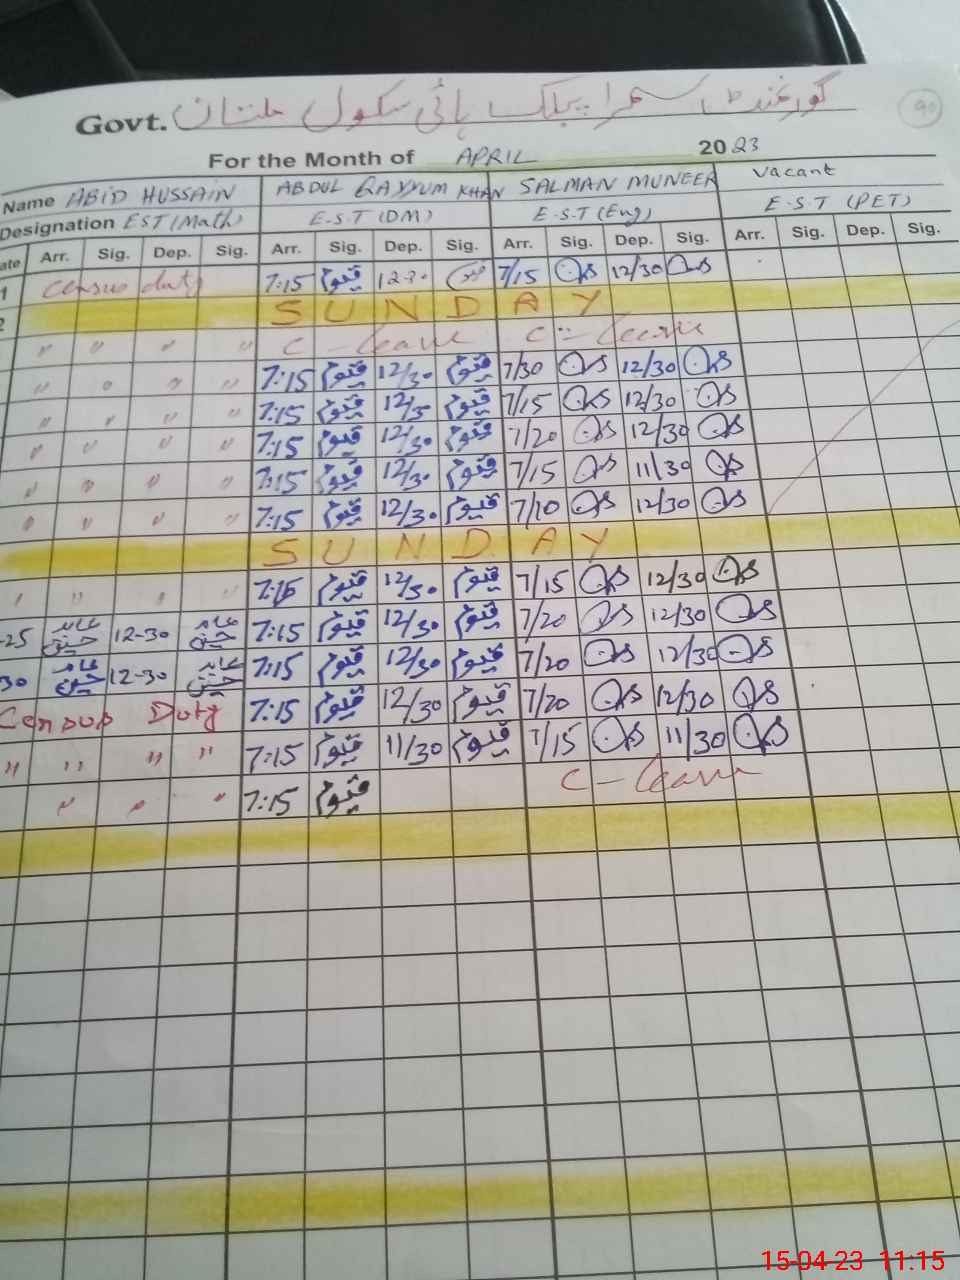 Govt. گورنمنٹ سمرا پبلک ہائی سکول ملتان
90
For the Month of APRIL 2023
Name ABID HUSSAIN ABDUL QAYYUM KHAN SALMAN MUNEER Vacant
Designation EST (Math) E.S.T (DM) E.S.T (Eng) E.S.T (PET)
ate Arr. Sig. Dep. Sig. Arr. Sig. Dep. Sig. Arr. Sig. Dep. Sig. Arr. Sig. Dep. Sig.
1 Census duty 7:15 قیوم 12-30 7/15 12/30
2 SUNDAY
" " " " C-leave C-leave
" " " " 7:15 قیوم 12/30 قیوم 7/30 12/30
" " " " 7:15 قیوم 12/3 قیوم 7/15 12/30
" " " " 7:15 قیوم 12/30 قیوم 7/20 12/30
" " " " 7:15 قیوم 12/30 قیوم 7/15 11/30
" " " " 7:15 قیوم 12/30 قیوم 12/30
SUNDAY
" " " " 7:15 قیوم 12/30 قیوم 7/15 12/30
-25 عابد حسین 12-30 عابد حسین 7:15 قیوم 12/30 قیوم 7/20 12/30
30 عابد حسین 12-30 عابد حسین 7:15 قیوم 12/30 قیوم 7/20 12/30
Census Duty 7:15 قیوم 12/30 قیوم 7/20 12/30
" " " " 7:15 قیوم 11/30 قیوم 7/15 11/30
" " " 7:15 قیوم C-leave
15-04-23 11:15